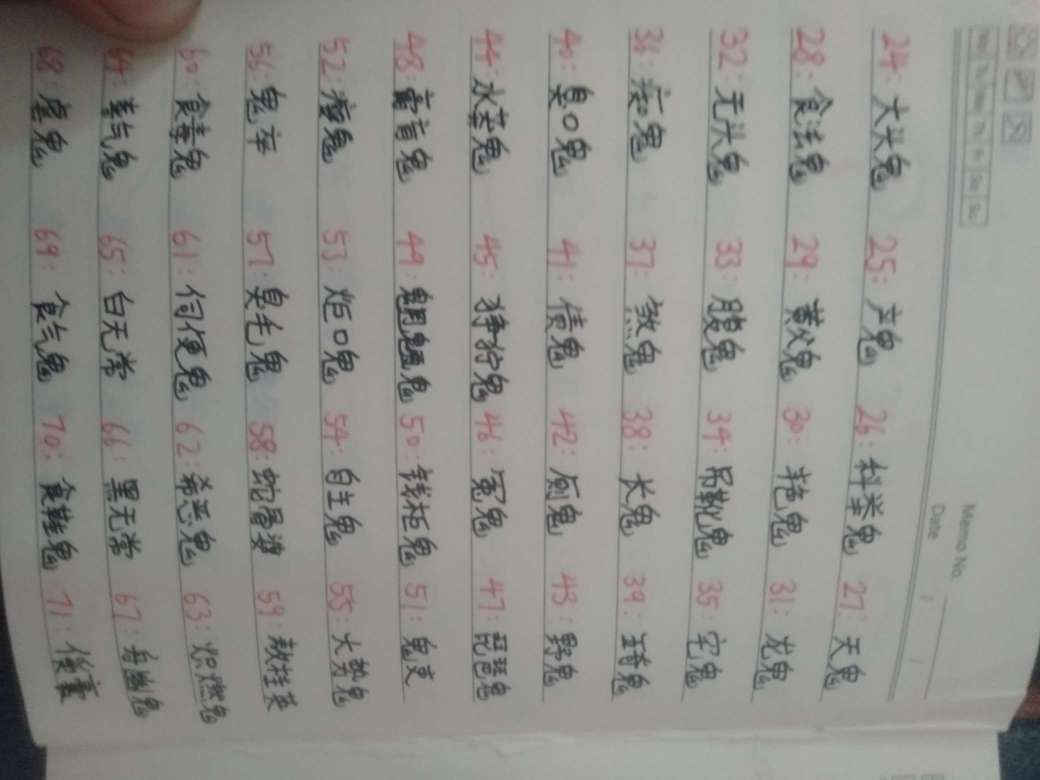 Memo No.
Date / /
24:大头鬼 25:产鬼 26:科举鬼 27:天鬼
28:食法鬼 29:黄父鬼 30:艳鬼 31:龙鬼
32:无头鬼 33:腹鬼 34:吊靴鬼 35:宅鬼
36:痴鬼 37:煞鬼 38:长鬼 39:琦鬼
40:臭口鬼 41:债鬼 42:厕鬼 43:野鬼
44:水莽鬼 45:狰狞鬼 46:冤鬼 47:琵琶鬼
48:鬼 49:鬼 50:钱柜鬼 51:鬼吏
52:瘦鬼 53:炬口鬼 54:自主鬼 55:大势鬼
56:鬼卒 57:臭毛鬼 58:蛇骨婆 59:敖桂英
60:食毒鬼 61:伺便鬼 62:希恶鬼 63:炽燃鬼
64:鬼 65:白无常 66:黑无常 67:鬼
68:虐鬼 69:食气鬼 70:食鞋鬼 71: